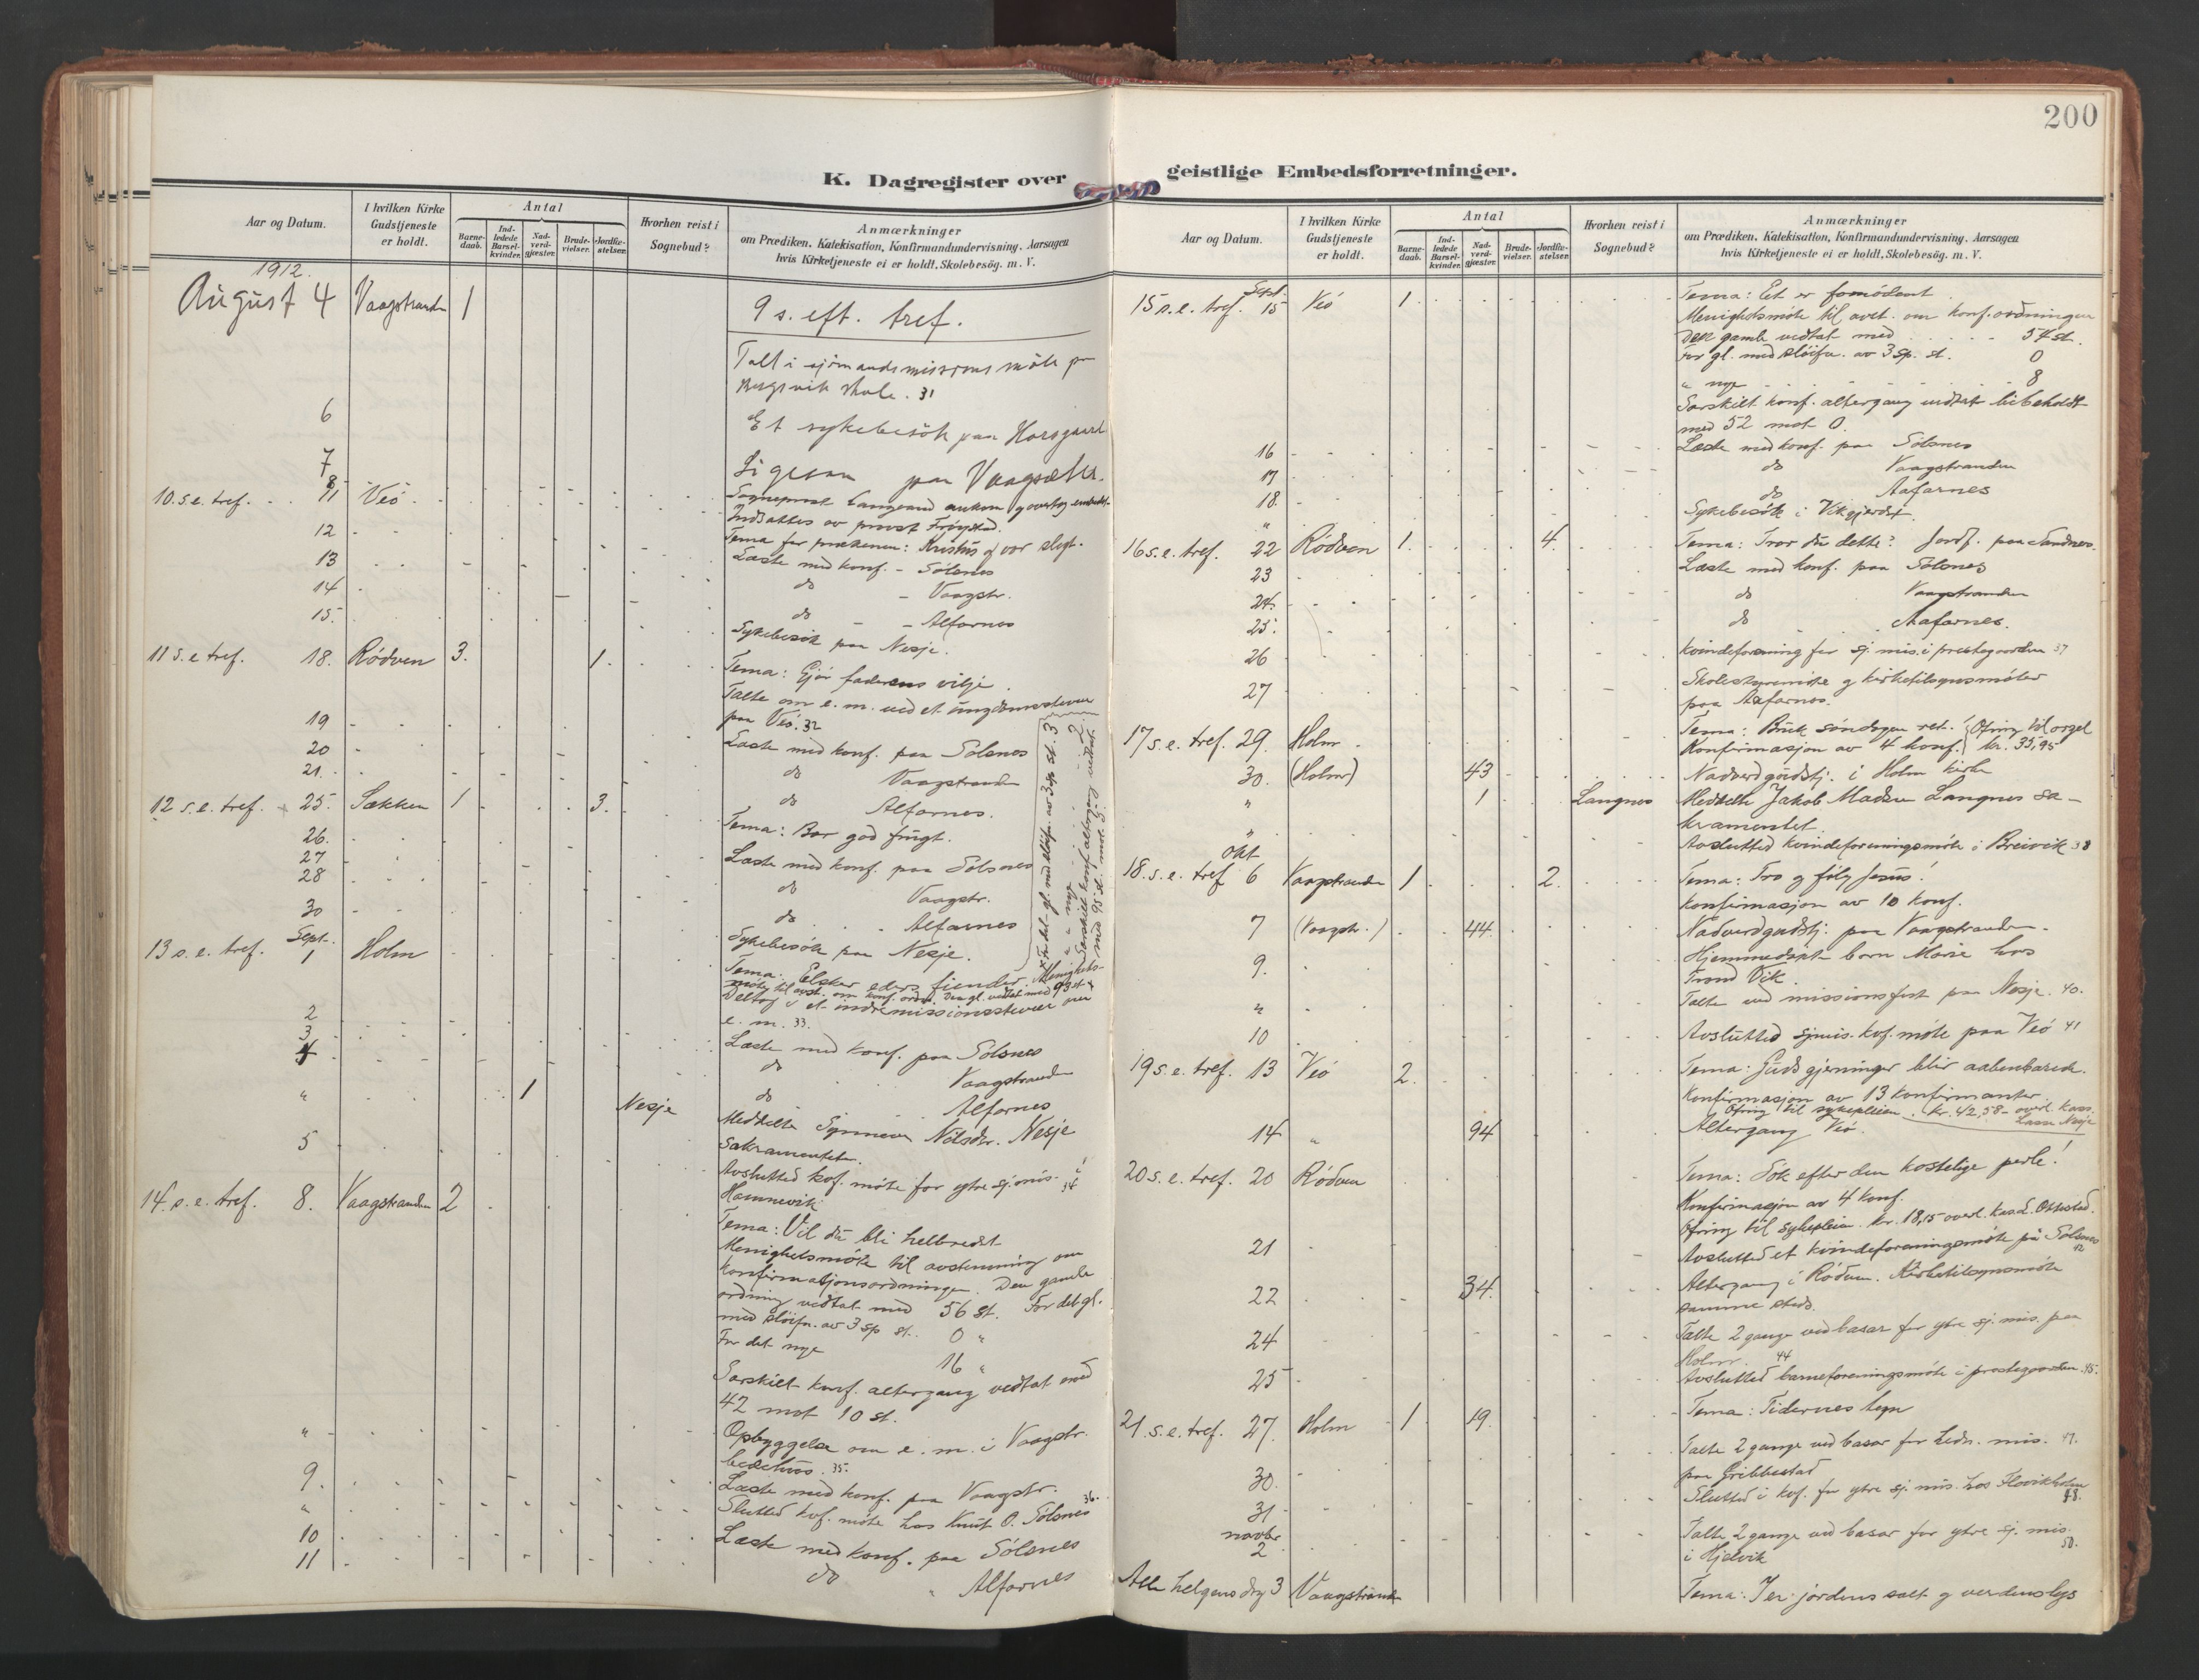 200
K. Dagregister over
geistlige Embedsforretninger.
Aar og Datum.
I hvilken Kirke Gudstjeneste er holdt.
Antal
Barne-daab.
Ind-ledede Barsel-kvinder.
Nad-verd-gjæster.
Brude-vielser.
Jordfæ-stelser.
Hvorhen reist i Sognebud?
Anmærkninger
om Prædiken, Katekisation, Konfirmandundervisning, Aarsagen
hvis Kirketjeneste ei er holdt, Skolebesøg. m. V.
1912.
August 4 Vaagstranden 1
9 s. eft. tref.
Talt i sjömandsmissions möte paa
skole. 31
6 Et sykebesök paa Horsgaard
7 Ligesaa paa Vaagsæter.
8
10. s. e. tref. 11 Veö
Sogneprest ankom og overtog embedet.
Indsattes av provst Fröystad.
Tema for prækenen: Kristus og vor slegt.
12 Læste med konf. - Sölsnes
13 do - Vaagstr.
14 do - Alfarnes
15. Sykebesök paa Nesje.
11 s. e. tref. 18. Rödven 3. 1.
Tema: Gjör faderens vilje.
Talte om e. m. ved et ungdomsstevne
paa Veö. 32
19 Læste med konf. paa Solsnes
20 do Vaagstranden
21. do Alfarnes.
12 s. e. tref. 25. Sækken 1 3.
Tema: Bær god frugt.
26. Læste med konf. paa Sölsnes
27 do Vaagstr.
28 do Alfarnes
30 Sykebesök paa Nesje.
13 s. e. tref. Sept. 1 Holm
Tema. Elsker eders fiender. Menighets-
möte til avst. om konf. ordn. Den gl. vedtat med 93 st. x
Deltog i et indremissionsstevne om
e. m. 33.
x For det gl. med slöifn. av 3 sp. st. 3
" " nye 2.
Særskilt konf. altergang vedtat
med 95 st. mot 3.
2 Læste med konf. paa Solsnes
3 do Vaagstranden
4 do Alfarnes
" 1 Nesje Meddelte Nilsdr. Nesje
sakramentet.
5 Avsluttet kvf. möte for ytre sjömis. i
Hamnevik 34
14. s. e. tref. 8. Vaagstranden 2
Tema: Vil du bli helbredet
Menighetsmöte til avstemning om
konfirmasjonsordningen. Den gamle
ordning vedtat med 56 st. For det gl.
med slöifn. av 3 sp st. 0 "
For det nye 16 "
Særskilt konf. altergang vedtat med
42 mot 10 st.
" Opbyggelse om e. m. i Vaagstr.
bedehus. 35.
9. Læste med konf. paa Vaagstr.
" Sluttet kvf. möte hos Knut O. Sölsnes 36.
10 Læste med konf. paa Sölsnes
11 do " Alfarnes
Aar og Datum.
I hvilken Kirke Gudstjeneste er holdt.
Antal
Barne-daab.
Ind-ledede Barsel-kvinder.
Nad-verd-gjæster.
Brude-vielser.
Jordfæ-stelser.
Hvorhen reist i Sognebud?
Anmærkninger
om Prædiken, Katekisation, Konfirmandundervisning, Aarsagen
hvis Kirketjeneste ei er holdt, Skolebesøg. m. V.
15 s. e. tref. Sept. 15 Veö 1.
Tema: Et er fornödent
Menighetsmöte til avst. om konf. ordningen
Den gamle vedtat med 54 st.
For gl. med slöifn. av 3 sp. st. 0
" nye 8
Særskilt konf. altergang vedtat bibeholdt
med 52 mot 0.
16 Læste med konf. paa Sölsnes
17 do Vaagstranden
18. do Aafarnes
" Sykebesök i Vikgjerdet.
16 s. e. tref. 22 Rödven 1. 4.
Tema: Tror du dette? Jordf. paa Sandnes.
23 Læste med konf. paa Sölsnes
24. do Vaagstranden
25. do Aafarnes.
26 Kvindeforening for sj. mis. i prestegaarden 37
27 Skolestyremöte og kirketilsynsmöter
paa Aafarnes.
17 s. e. tref. 29. Holm
Tema: Bruk söndagen ret. Ofring til orgel
Konfirmasjon av 4 konf. kr. 35,95
30. (Holm) 43 Nadverdgudstj. i Holm kirke
" 1 Langnes Meddelte Jakob Madsen Langnes sa-
kramentet.
" Avsluttet kvindeforeningsmöte i Breivik 38
Okt
18. s. e. tref 6 Vaagstranden 1 2.
Tema: Tro og fölg Jesus!
Konfirmasjon av 10 konf.
7 (Vaagstr.) 44 Nadverdgudstj. paa Vaagstranden.
9. Hjemmedöpt barn Marie hos
Trond Vik.
" Talte ved missionsfest paa Nesje. 40.
10 Avsluttet sjmis. kvf. möte paa Veö 41
19 s. e. tref. 13 Veö 2.
Tema: Guds gjerninger blir aabenbarede.
Konfirmasjon av 13 konfirmanter
Ofring til sykepleien. kr. 42,58 - overl. kass.
Lasse Nesje
14 " 94 Altergang Veö.
20 s. e. tref. 20 Rödven
Tema: Sök efter den kostelige perle!
Konfirmasjon av 4 konf.
Ofring til sykepleien. kr. 18,15 overl. kas.
21 Avsluttet et kvindeforeningsmöte på Sölsnes 42
22 34. Altergang i Rödven. Kirketilsynsmöte
samme steds.
24 Talte 2 gange ved basar for ytre sj. mis. paa
Holm. 44
25 Avsluttet barneforeningsmöte i prestegaarden. 45.
21. s. e. tref. 27. Holm 1 19.
Tema: Tidernes tegn
30. Talte 2 gange ved basar for hedn. mis. 47.
paa Gribbestad
31 Sluttet i kvf. for ytre sj. mis. hos Flovikholm 48.
novbr. 2 Talte 2 gange ved basar for ytre sj. mis.
i Hjelvik 50.
Alle helgens dag 3 Vaagstranden
Tema: I er jordens salt og verdens lys